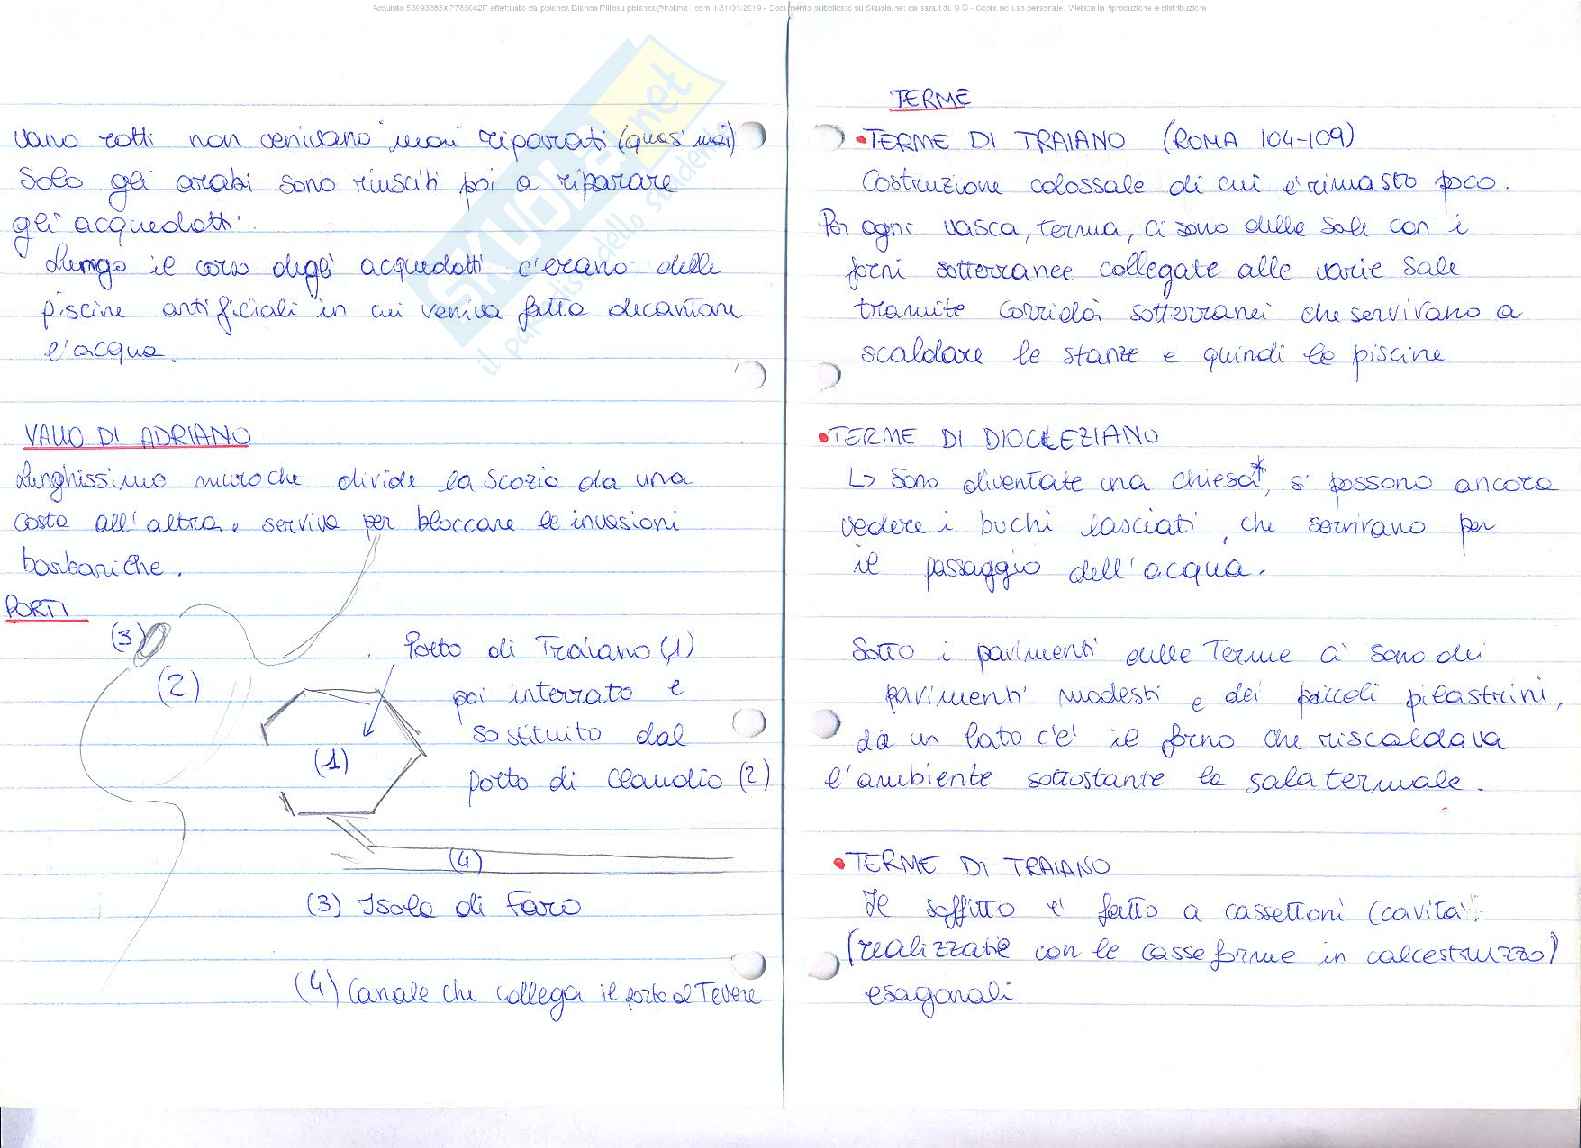 vano rotti non venivano mai riparati (quasi mai)
Solo gli arabi sono riusciti poi a riparare
gli acquedotti.
Lungo il corso degli acquedotti c'erano delle
piscine artificiali in cui veniva fatta decantare
l'acqua.
VALLO DI ADRIANO
Lunghissimo muro che divide la Scozia da una
costa all'altra, serviva per bloccare le invasioni
barbariche.
PORTI
(3)
(2)
(1)
Porto di Traiano (1)
poi interrato e
sostituito dal
porto di Claudio (2)
(4)
(3) Isola di Faro
(4) Canale che collega il porto al Tevere
TERME
• TERME DI TRAIANO (ROMA 104-109)
Costruzione colossale di cui è rimasto poco.
Per ogni vasca, terma, ci sono delle sale con i
forni sotterranee collegate alle varie sale
tramite corridoi sotterranei che servivano a
scaldare le stanze e quindi le piscine
• TERME DI DIOCLEZIANO
↳ Sono diventate una chiesa*, si possono ancora
vedere i buchi lasciati, che servivano per
il passaggio dell'acqua.
Sotto i pavimenti delle Terme ci sono dei
pavimenti modesti e dei piccoli pilastrini,
da un lato c'è il forno che riscaldava
l'ambiente sottostante la sala termale.
• TERME DI TRAIANO
Il soffitto è fatto a cassettoni (cavità
(realizzate con le casseforme in calcestruzzo)
esagonali
SKUOLA.net
il paradiso dello studente